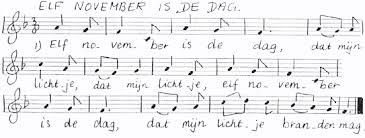 ELF NOVEMBER IS DE DAG.
1) Elf no-vem-ber is de dag, dat mijn
licht-je, dat mijn licht-je, elf no-vem-ber
is de dag, dat mijn licht-je bran-den mag.